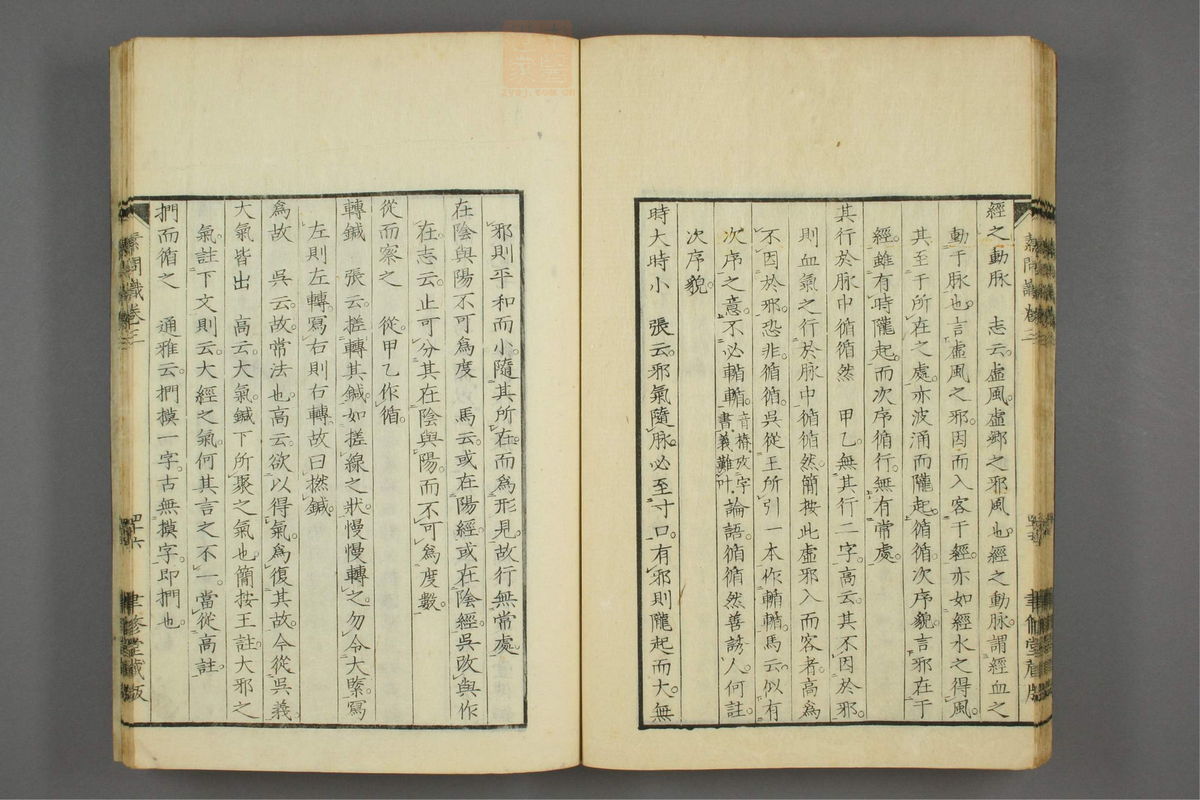 經之動脈　志云。虛風。虛鄉之邪風也。經之動脈。謂經血之
動于脈也。言虛風之邪。因而入客于經。亦如經水之得風。
其至于所在之處。亦波涌而隴起。循循。次序貌。言邪在于
經。雖有時隴起。而次序循行。無有常處。
其行於脈中循循然　甲乙。無其行二字。高云。其不因於邪。
則血氣之行於脈中循循然。簡按此虛邪入而客者。高爲
不因於邪。恐非。循循。吳從王所引一本作輴輴。馬云。似有
次序之意。不必輴輴。音椿。攷字書義難叶。論語。循循然善誘人。何註
次序貌。
時大時小　張云。邪氣隨脈。必至寸口。有邪則隴起而大。無
素問識卷三
聿修堂藏版
邪則平和而小。隨其所在。而爲形見。故行無常處。
在陰與陽不可爲度　馬云。或在陽經。或在陰經。吳改與作
在。志云。止可分其在陰與陽。而不可爲度數。
從而察之　從。甲乙作循。
轉鍼　張云。搓轉其鍼。如搓線之狀。慢慢轉之。勿令大緊。寫
左則左轉。寫右則右轉。故曰撚鍼。
爲故　吳云。故。常法也。高云。欲以得氣。爲復其故。今從吳義。
大氣皆出　高云。大氣。鍼下所聚之氣也。簡按王註。大邪之
氣。註下文則云。大經之氣。何其言之不一。當從高註。
捫而循之　通雅云。捫摸一字。古無摸字。即捫也。
素問識卷三
四十六
聿修堂藏版